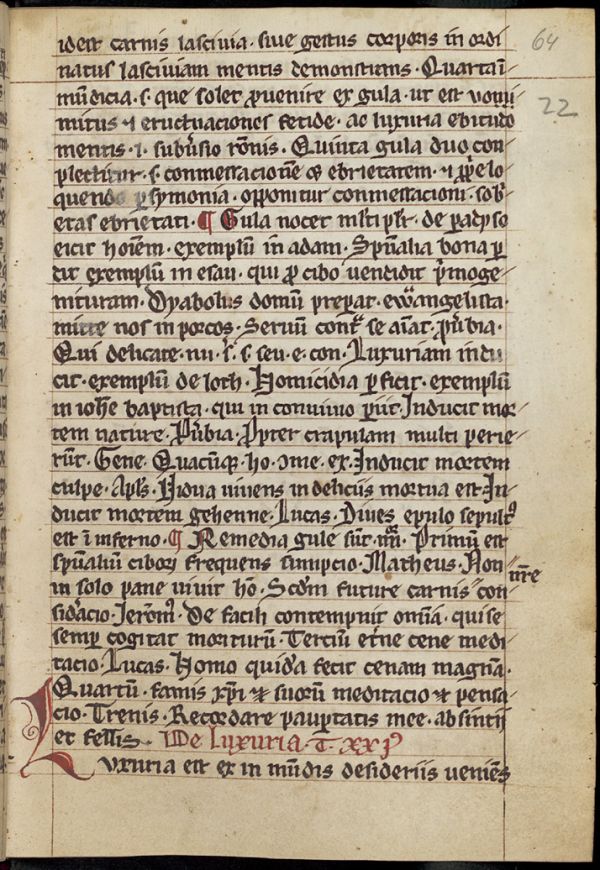 64
idest carnis lasciuia · siue gestus corporis in ordi
natus lasciuiam mentis demonstrans · Quarta ī
22
mūdicia · s · que solet ꝓuenire ex gula · ut est vomi
mitus ⁊ eructuaciones fetide · ac luxuria ebitudo
mentis · i · subūsio rōnis · Quinta gula duo con
plectitur · s · conmessacionē ⁊ ebrietatem · ⁊
quendo symonia · opponitur conmessacioni · sob
etas ebrietati · ¶ Gula nocet de padyso
eicit hoīem · exemplū in adam · Spūalia bona ꝑ
dit exemplū in esau · qui ꝓ cibo vendidit pimoge
nituram · Dyabolus domū prepat · ewangelista ·
mitte nos in porcos · Seruū cont se aīat · ꝓūbia ·
Qui delicate · nu · s · s · seu · e · con · Luxuriam indu
cit · exemplū de loth · Homicidia ꝑficit · exemplū
in iohē baptista · qui in conuiuio piit · Inducit mor
tem nature · Pūbia · Ppter crapulam multi perie
rūt · Gene · Quacūqꝫ · ho · ome · ex · Inducit mortem
culpe · Apls · Vidua viuens in deliciis mortua est · In
ducit mortem gehenne · Lucas · Diues epulo sepultꝰ
est ī inferno · ¶ Remedia gule sūt · iiii · Primū est
spūaliū ciborū frequens sumpcio · Matheus · Non
in solo pane viuit hō · Scdm future carnis con
sidacio · Jeronī · De facili contempnit omīa · qui se
semp cogitat moriturū · Terciū etne cene medi
tacio · Lucas · Homo quidā fecit cenam magnā ·
Quartū · famis xpi ⁊ suorū meditacio ⁊ pensa
cio · Trenis · Recordare paupertatis mee · absintii
et fellis · De Luxuria · T · xxi
Luxuria est ex in mūdis desideriis veniēs